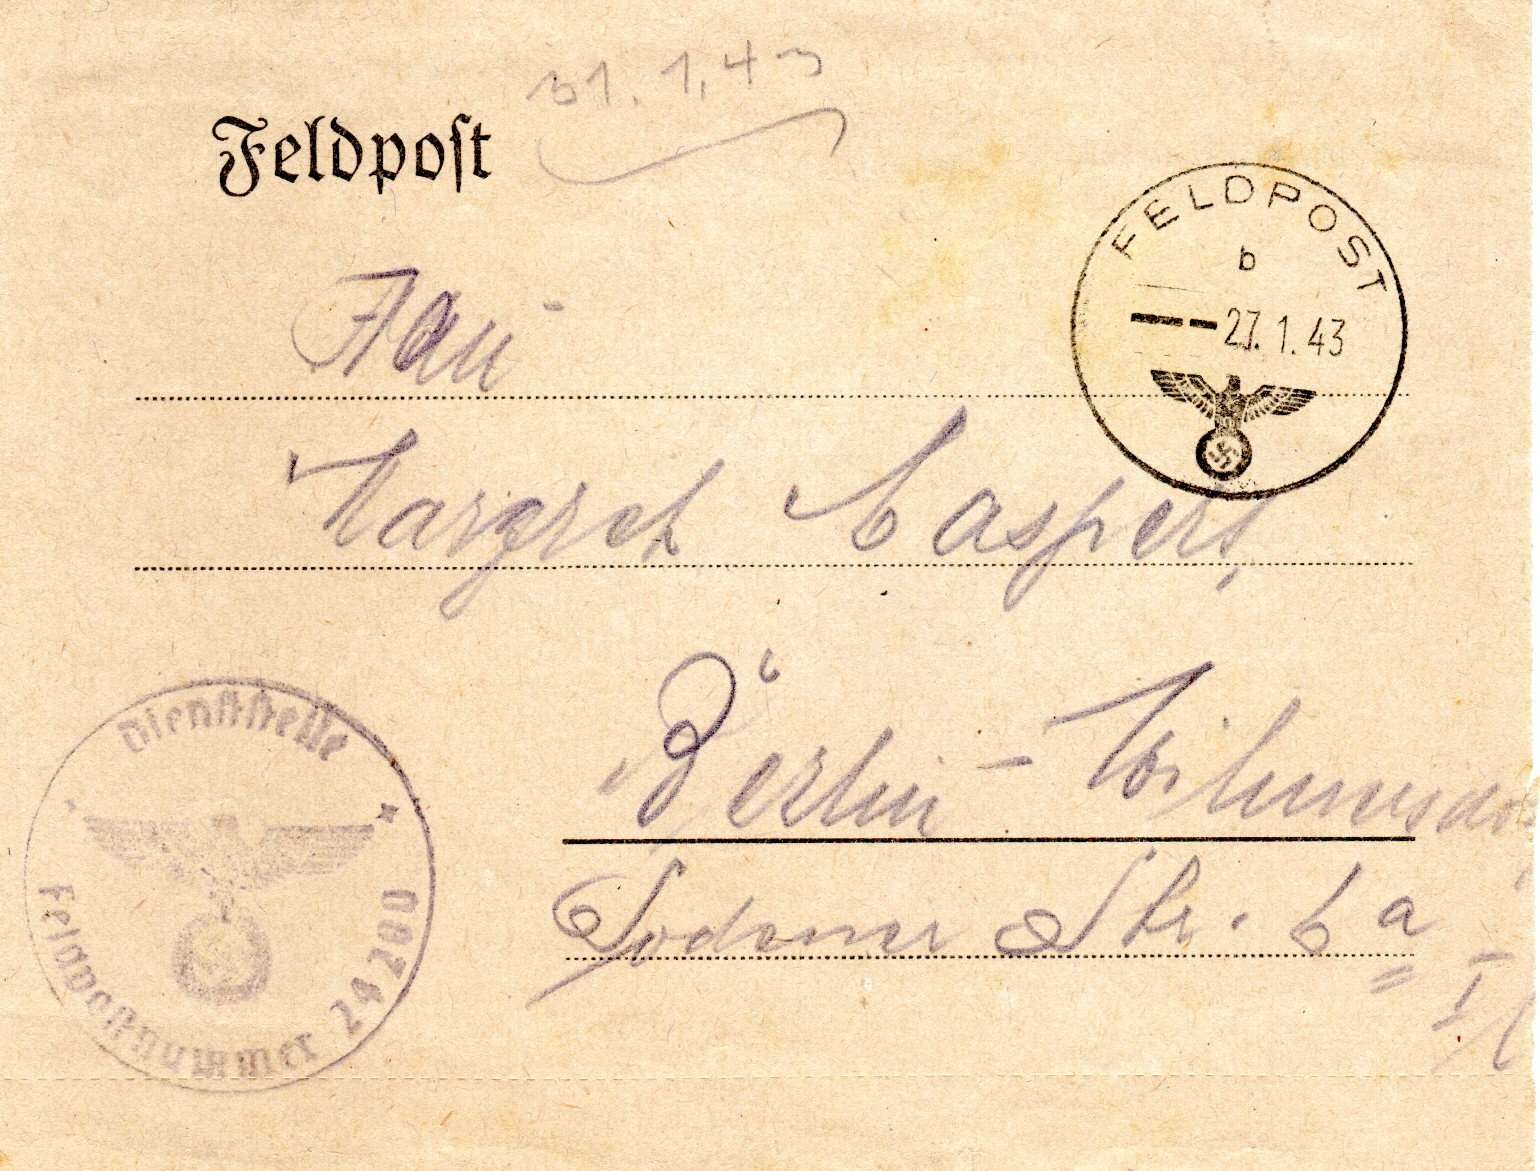 31.1.43
Feldpost
FELDPOST
b
27.1.43
Frau
Margret Caspers,
Berlin-Wilmersdo
Sodener Str. 6a
Dienststelle
Feldpostnummer 24200